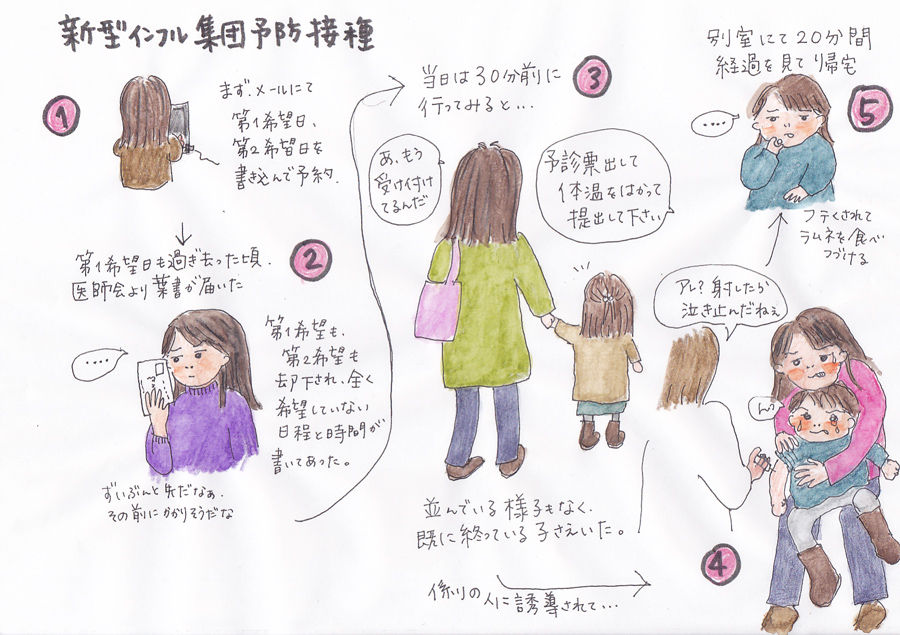 新型インフル集団予防接種
1
まず、メールにて
第1希望日、
第2希望日を
書き込んで予約.
2
第1希望日も過ぎ去った頃.
医師会より葉書が届いた
....
第1希望も、
第2希望も
却下され、全く
希望していない
日程と時間が
書いてあった。
ずいぶんと先だなぁ.
その前にかかりそうだな
3
当日は30分前に
行ってみると...
あ、もう
受け付け
てるんだ
予診票出して
体温をはかって
提出して下さい
並んでいる様子もなく.
既に終っている子さえいた。
係りの人に誘導されて...
4
アレ?射したら
泣き止んだねぇ
ん?
5
別室にて20分間
経過を見て帰宅
....
フテくされて
ラムネを食べ
つづける